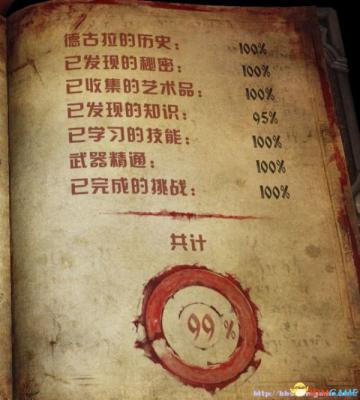 德古拉的历史： 100%
已发现的秘密： 100%
已收集的艺术品： 100%
已发现的知识： 95%
已学习的技能： 100%
武器精通： 100%
已完成的挑战： 100%
共计
99 %